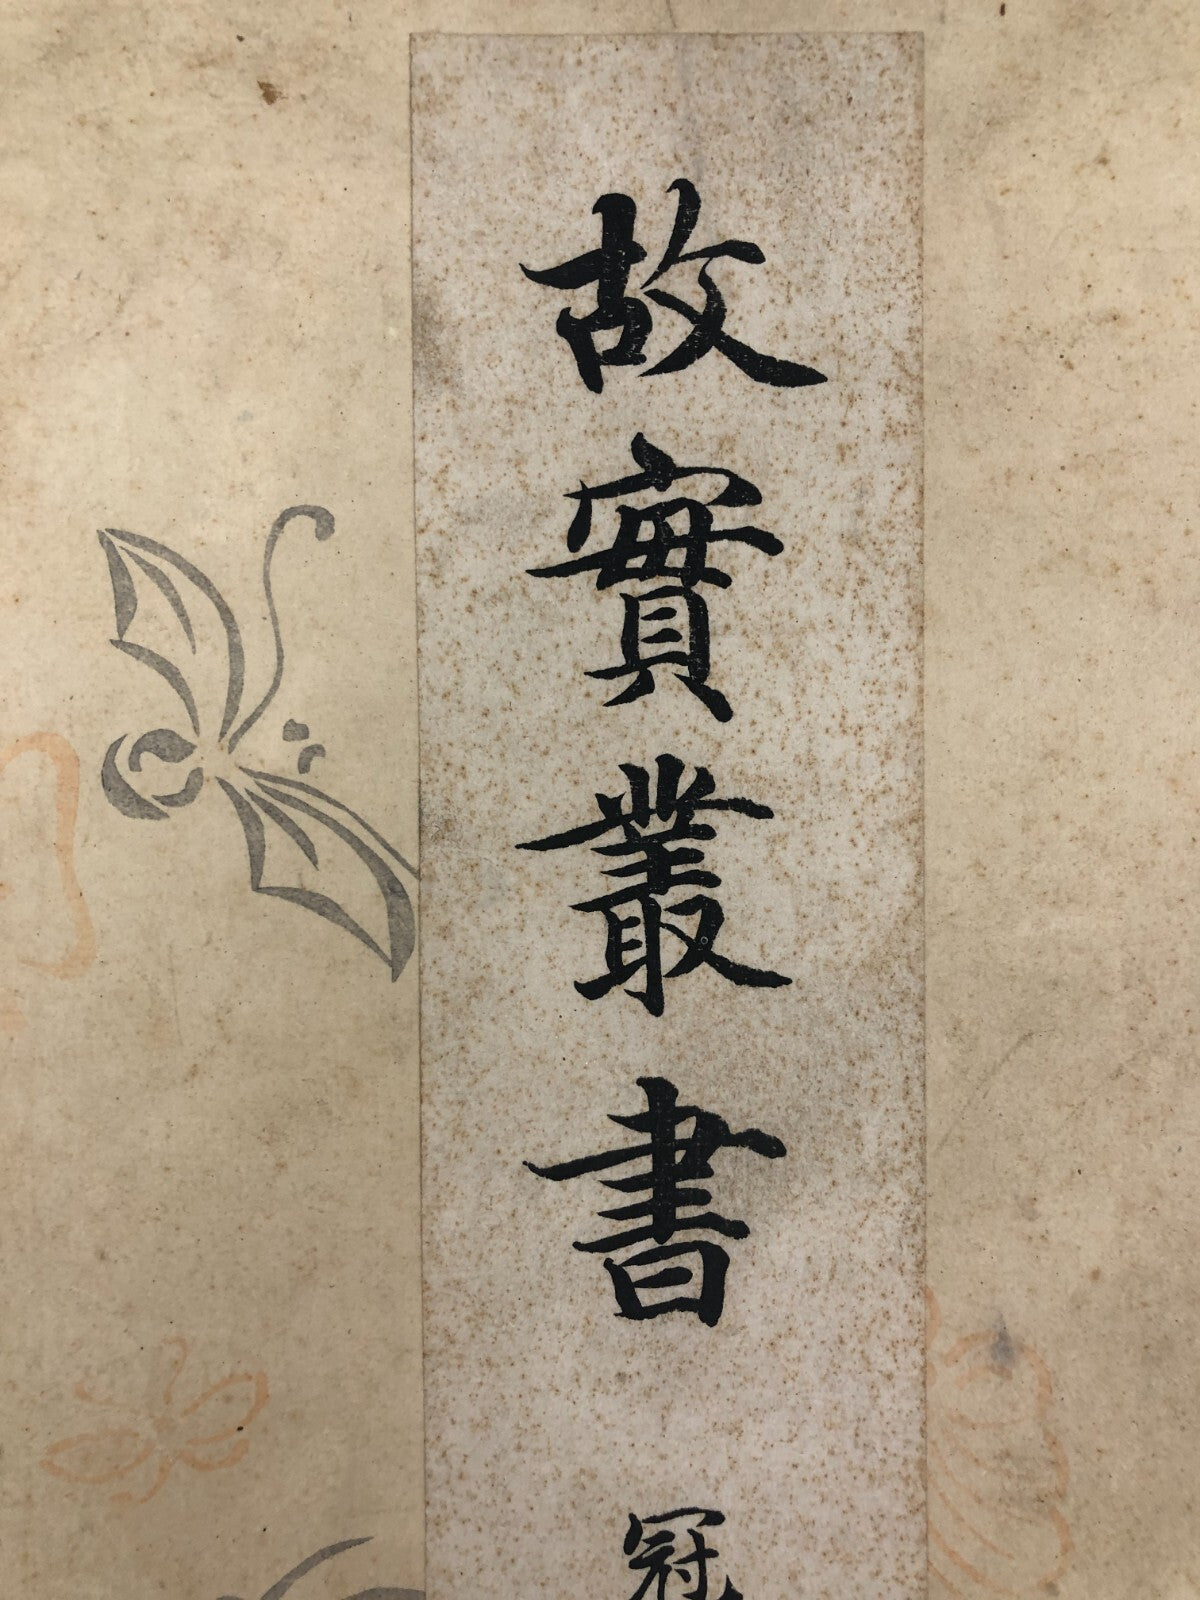 故實叢書
冠